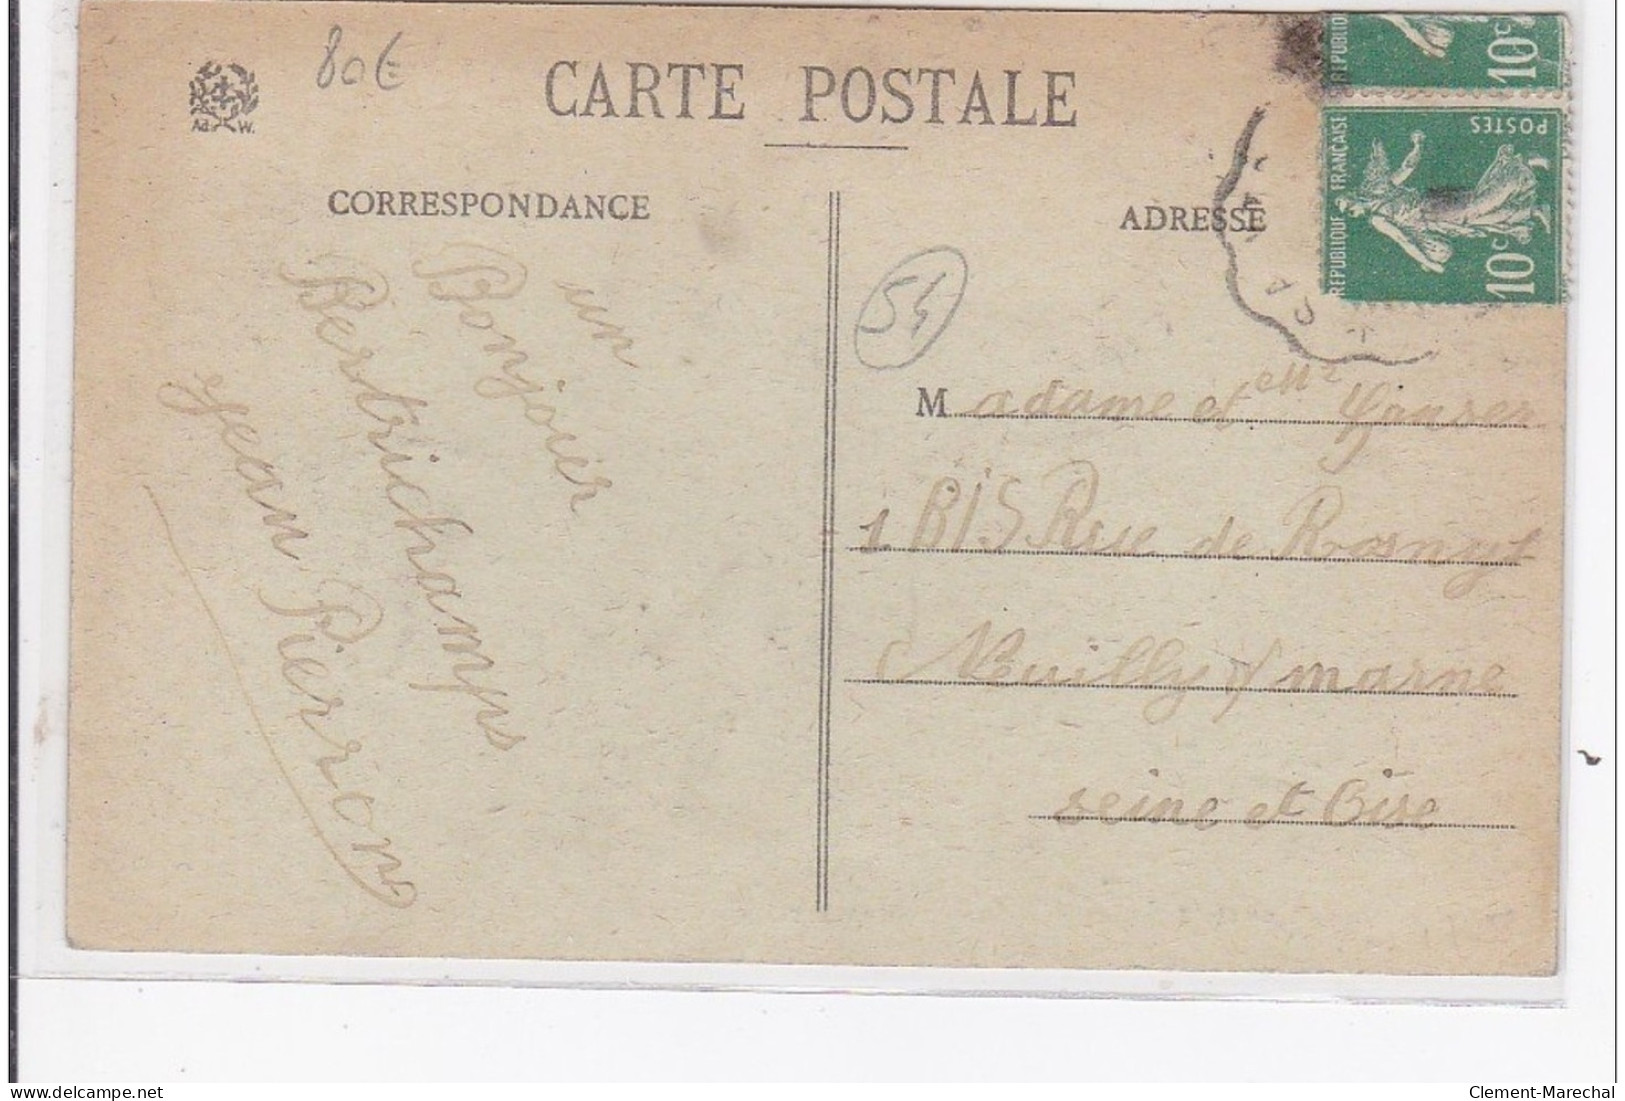 80€
CARTE POSTALE
Ad. W.
CORRESPONDANCE
ADRESSE
REPUBLIQUE FRANÇAISE
POSTES
10c
REPUBLIQ
10c
54
un
Bonjour
Bertrichamps
Jean Pierron
Madame et elle
1 BIS Rue de Rosny
Neuilly s/ marne
seine et Oise
delcampe.net
Clement-Marechal